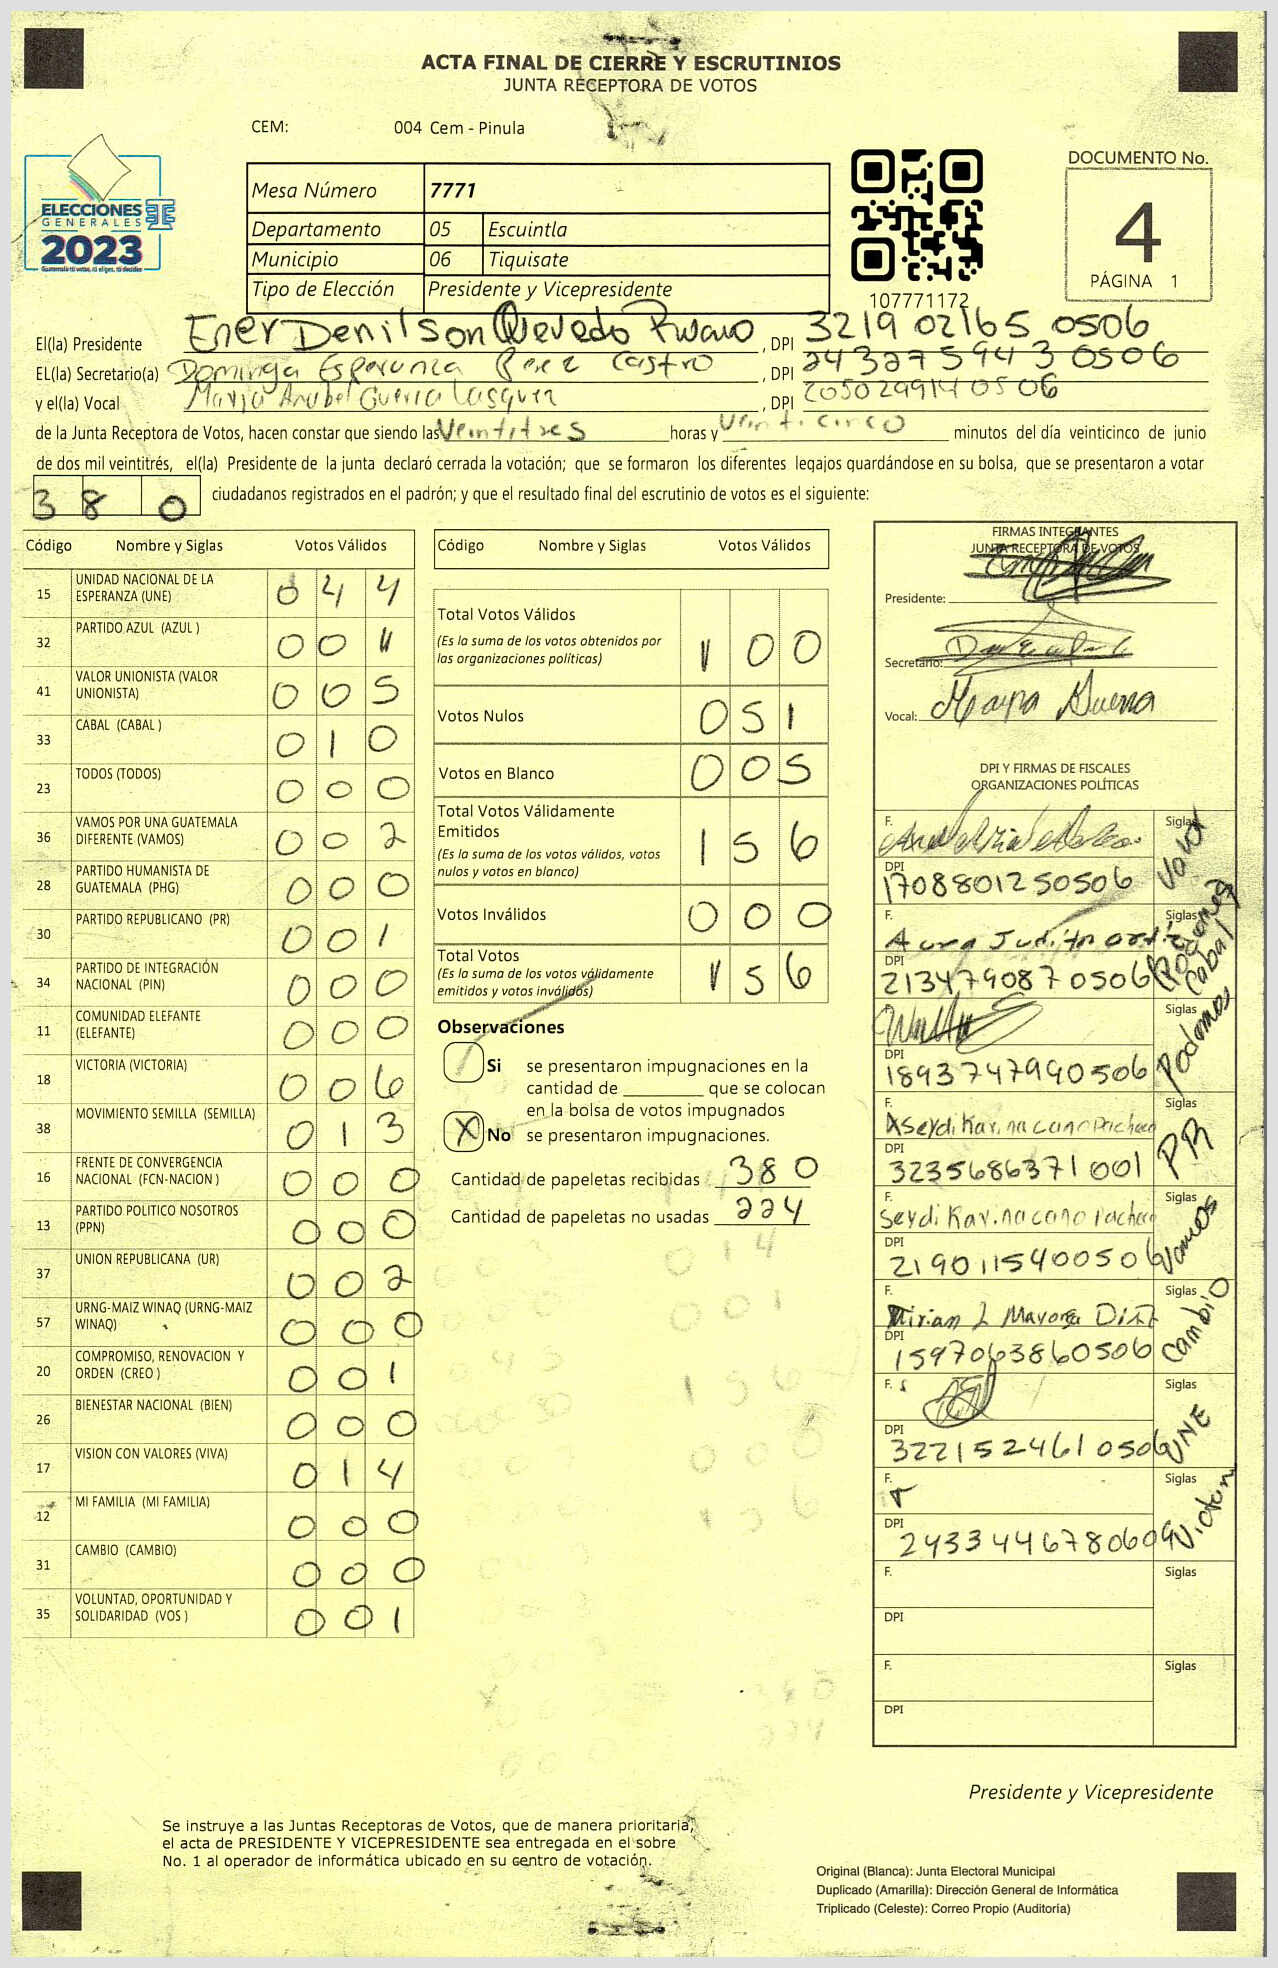 ACTA FINAL DE CIERRE Y ESCRUTINIOS
JUNTA RECEPTORA DE VOTOS
CEM: 004 Cem - Pinula
ELECCIONES
GENERALES
2023
Mesa Número 7771
Departamento 05 Escuintla
Municipio 06 Tiquisate
Tipo de Elección Presidente y Vicepresidente
107771172
DOCUMENTO No.
4
PÁGINA 1
El(la) Presidente Ener Denilson Quevedo , DPI 3219 02165 0506
EL(la) Secretario(a) Dominga Esperanza Perez Castro , DPI 243275943 0506
y el(la) Vocal Guerra , DPI 205029914 0506
de la Junta Receptora de Votos, hacen constar que siendo las Veintitres horas y Veinticinco minutos del día veinticinco de junio
de dos mil veintitrés, el(la) Presidente de la junta declaró cerrada la votación; que se formaron los diferentes legajos guardándose en su bolsa, que se presentaron a votar
380 ciudadanos registrados en el padrón; y que el resultado final del escrutinio de votos es el siguiente:
Código Nombre y Siglas Votos Válidos
15 UNIDAD NACIONAL DE LA
ESPERANZA (UNE) 044
32 PARTIDO AZUL (AZUL ) 001
41 VALOR UNIONISTA (VALOR
UNIONISTA) 005
33 CABAL (CABAL ) 010
23 TODOS (TODOS) 000
36 VAMOS POR UNA GUATEMALA
DIFERENTE (VAMOS) 002
28 PARTIDO HUMANISTA DE
GUATEMALA (PHG) 000
30 PARTIDO REPUBLICANO (PR) 001
34 PARTIDO DE INTEGRACIÓN
NACIONAL (PIN) 000
11 COMUNIDAD ELEFANTE
(ELEFANTE) 000
18 VICTORIA (VICTORIA) 006
38 MOVIMIENTO SEMILLA (SEMILLA) 013
16 FRENTE DE CONVERGENCIA
NACIONAL (FCN-NACION ) 000
13 PARTIDO POLITICO NOSOTROS
(PPN) 000
37 UNION REPUBLICANA (UR) 002
57 URNG-MAIZ WINAQ (URNG-MAIZ
WINAQ) 000
20 COMPROMISO, RENOVACION Y
ORDEN (CREO ) 001
26 BIENESTAR NACIONAL (BIEN) 000
17 VISION CON VALORES (VIVA) 014
12 MI FAMILIA (MI FAMILIA) 000
31 CAMBIO (CAMBIO) 000
35 VOLUNTAD, OPORTUNIDAD Y
SOLIDARIDAD (VOS ) 001
Código Nombre y Siglas Votos Válidos
Total Votos Válidos
(Es la suma de los votos obtenidos por
las organizaciones políticas) 100
Votos Nulos 051
Votos en Blanco 005
Total Votos Válidamente
Emitidos
(Es la suma de los votos válidos, votos
nulos y votos en blanco) 156
Votos Inválidos 000
Total Votos
(Es la suma de los votos válidamente
emitidos y votos inválidos) 156
Observaciones
Si se presentaron impugnaciones en la
cantidad de ________ que se colocan
en la bolsa de votos impugnados
X No se presentaron impugnaciones.
Cantidad de papeletas recibidas 380
Cantidad de papeletas no usadas 224
FIRMAS INTEGRANTES
JUNTA RECEPTORA DE VOTOS
Presidente:
Secretario:
Vocal: Mayra Guerra
DPI Y FIRMAS DE FISCALES
ORGANIZACIONES POLÍTICAS
F. Siglas Valor
DPI 1708801250506
F. Aura Judith Siglas Podemos Cabal
DPI 2134790870506
F. Siglas Podemos
DPI 1893747990506
F. Seydi Karina Cano Pacheco Siglas PR
DPI 3235686371001
F. Seydi Karina Cano Pacheco Siglas Vamos
DPI 2190115400506
F. Mirian L Mayorga Siglas Cambio
DPI 1597063860506
F. Siglas UNE
DPI 3221524610506
F. Siglas
DPI 2433446780609
F. Siglas
DPI
F. Siglas
DPI
Presidente y Vicepresidente
Se instruye a las Juntas Receptoras de Votos, que de manera prioritaria,
el acta de PRESIDENTE Y VICEPRESIDENTE sea entregada en el sobre
No. 1 al operador de informática ubicado en su centro de votación.
Original (Blanca): Junta Electoral Municipal
Duplicado (Amarilla): Dirección General de Informática
Triplicado (Celeste): Correo Propio (Auditoría)